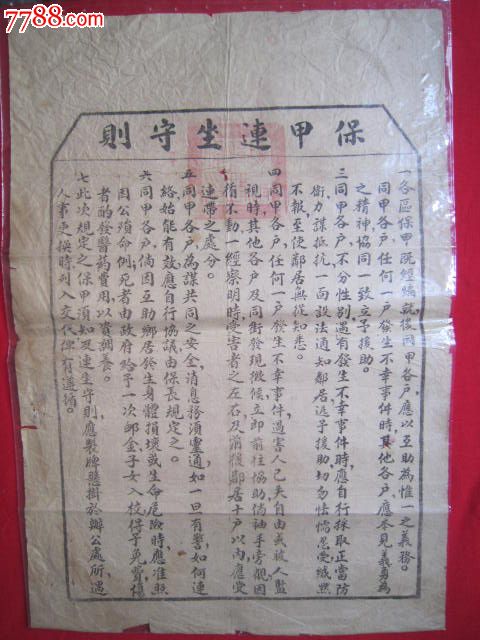 7788.com
保甲連坐守則
一各區保甲既經編就後同甲各戶應以互助為惟一之義務。
同甲各戶任何一戶發生不幸事件時其他各戶應本見義勇為
之精神協同一致立予援助。
三同甲各戶不分性別遇有發生不幸事件時應自行採取正當防
衛力謀抵抗一面設法通知鄰居返予援助切勿怯懦忍受緘默
不報至使鄰居無從知悉。
四同甲各戶任何一戶發生不幸事件遇害人已失自由或被人監
視時其他各戶及同街發現徵候立即前往協助倘袖手旁觀因
循不動一經察明時受害者之左右及前後鄰居十戶以內應受
連帶之處分。
五同甲各戶為謀共同之安全消息務須靈通如一旦有警如何連
絡始能有效應自行協議由保長規定之。
六同甲各戶倘因互助鄉居發生身體損壞或生命危險時應准照
因公殞命例死者由政府給予一次卹金子女入校得予免費傷
者酌發醫藥費用以資調養。
七此次規定之保甲須知及連坐守則應製牌懸掛於辦公處所遇
人事更換時列入交代俾有遵循。